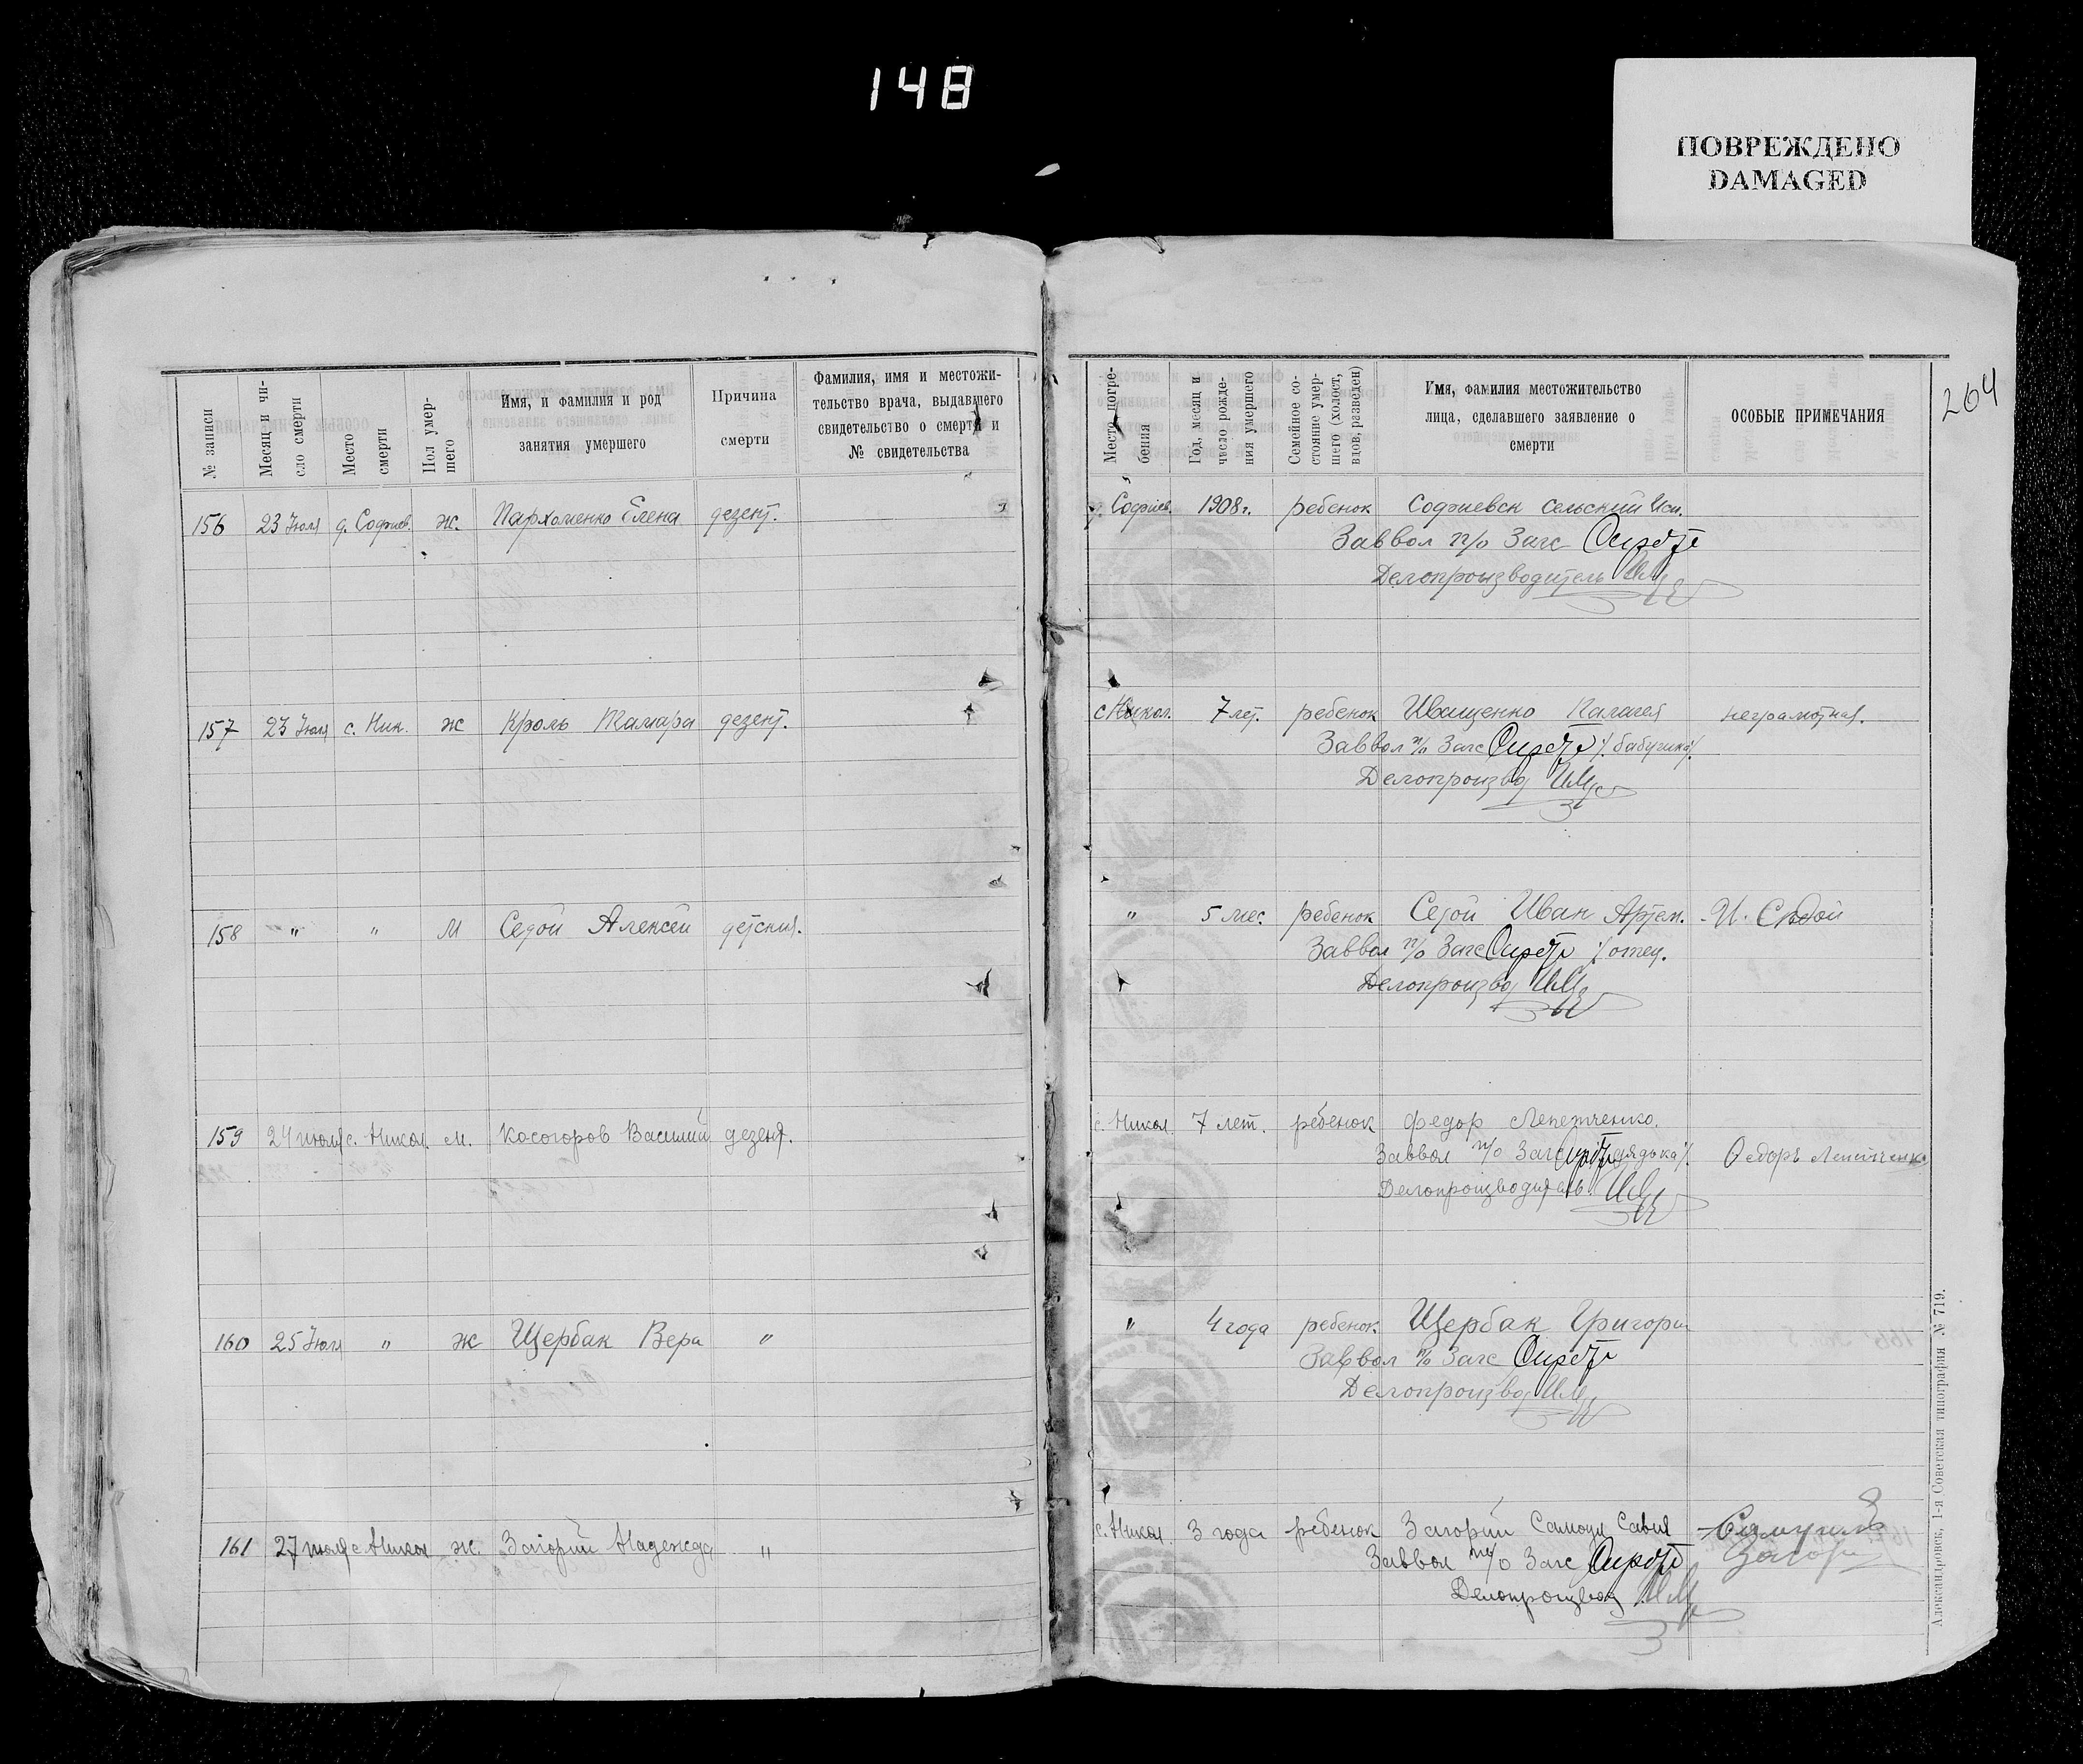 148
ПОВРЕЖДЕНО
DAMAGED
264
№ записи
Месяц и чи-
сло смерти
Место
смерти
Пол умер-
шего
Имя, и фамилия и род
занятия умершего
Причина
смерти
Фамилия, имя и местожи-
тельство врача, выдавшего
свидетельство о смерти и
№ свидетельства
Место погре-
бения
Год, месяц и
число рожде-
ния умершего
Семейное со-
стояние умер-
шего (холост,
вдов, разведен)
Имя, фамилия местожительство
лица, сделавшего заявление о
смерти
ОСОБЫЕ ПРИМЕЧАНИЯ
156 23 Июля д. Софиев. ж. Пархоменко Елена дезент.
д. Софиев. 1908 г. ребенок Софиевск сельский Исп.
Заввол п/о Загс
Делопроизводитель
157 23 Июля с. Ник. ж Кроль Тамара дезент.
с Никол. 7 лет. ребенок Иващенко Палагея неграмотная.
Заввол п/о Загс /. бабушка /.
Делопроизвод
158 " " м Седой Алексей детская.
" 5 мес. ребенок Седой Иван Артем. И. Сѣдой
Заввол п/о Загс /. отец.
Делопроизвод
159 24 июля с. Никол м. Косогоров Василий дезент.
с. Никол. 7 лет. ребенок Федор Лепетченко.
Заввол п/о Загс дядька /. Федоръ Лепетченк
Делопроизводитель
160 25 Июля " ж Щербак Вера "
" 4 года ребенок Щербак Григори
Заввол п/о Загс
Делопроизвод
161 27 июля с Никол ж. Загорий Надежда "
с. Никол 3 года ребенок Загорий Самоил Савил Самуилъ
Заввол п/о Загс Загори
Делопроизвод
Александровск, 1-я Советская типография № 719.